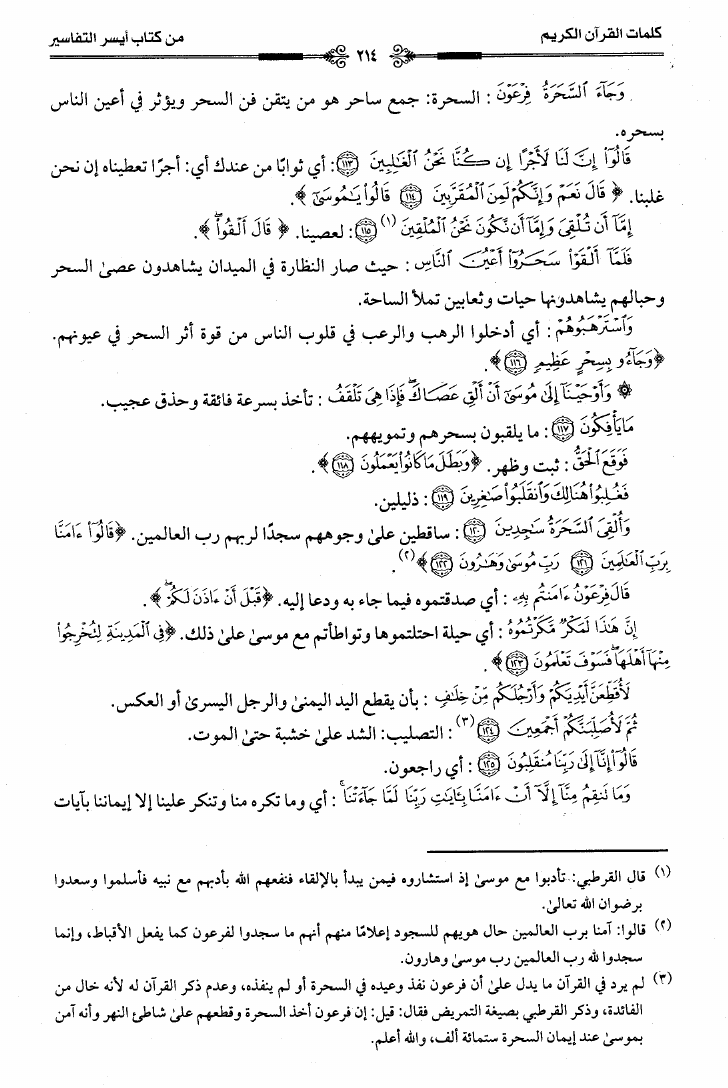 كلمات القرآن الكريم
من كتاب أيسر التفاسير
٢١٤
وَجَآءَ السَّحَرَةُ فِرْعَوْنَ : السحرة: جمع ساحر هو من يتقن فن السحر ويؤثر في أعين الناس
بسحره.
قَالُوٓا۟ إِنَّ لَنَا لَأَجْرًا إِن كُنَّا نَحْنُ الْغَٰلِبِينَ ﴿١١٣﴾: أي ثوابًا من عندك أي: أجرًا تعطيناه إن نحن
غلبنا. ﴿ قَالَ نَعَمْ وَإِنَّكُمْ لَمِنَ الْمُقَرَّبِينَ ﴿١١٤﴾ قَالُوا۟ يَٰمُوسَىٰٓ ﴾.
إِمَّآ أَن تُلْقِىَ وَإِمَّآ أَن نَّكُونَ نَحْنُ الْمُلْقِينَ (١) ﴿١١٥﴾: لعصينا. ﴿ قَالَ أَلْقُوا۟ۖ ﴾.
فَلَمَّآ أَلْقَوْا۟ سَحَرُوٓا۟ أَعْيُنَ النَّاسِ : حيث صار النظارة في الميدان يشاهدون عصىٰ السحر
وحبالهم يشاهدونها حيات وثعابين تملأ الساحة.
وَاسْتَرْهَبُوهُمْ : أي أدخلوا الرهب والرعب في قلوب الناس من قوة أثر السحر في عيونهم.
﴿وَجَآءُو بِسِحْرٍ عَظِيمٍ ﴿١١٦﴾ ﴾.
۞ وَأَوْحَيْنَآ إِلَىٰ مُوسَىٰٓ أَنْ أَلْقِ عَصَاكَۖ فَإِذَا هِىَ تَلْقَفُ : تأخذ بسرعة فائقة وحذق عجيب.
مَا يَأْفِكُونَ ﴿١١٧﴾: ما يلقبون بسحرهم وتمويههم.
فَوَقَعَ الْحَقُّ : ثبت وظهر. ﴿وَبَطَلَ مَا كَانُوا۟ يَعْمَلُونَ ﴿١١٨﴾ ﴾.
فَغُلِبُوا۟ هُنَالِكَ وَانقَلَبُوا۟ صَٰغِرِينَ ﴿١١٩﴾: ذليلين.
وَأُلْقِىَ السَّحَرَةُ سَٰجِدِينَ ﴿١٢٠﴾ : ساقطين علىٰ وجوههم سجدًا لربهم رب العالمين. ﴿قَالُوٓا۟ ءَامَنَّا
بِرَبِّ الْعَٰلَمِينَ ﴿١٢١﴾ رَبِّ مُوسَىٰ وَهَٰرُونَ ﴿١٢٢﴾ ﴾(٢).
قَالَ فِرْعَوْنُ ءَامَنتُم بِهِۦ : أي صدقتموه فيما جاء به ودعا إليه. ﴿قَبْلَ أَنْ ءَاذَنَ لَكُمْۖ ﴾.
إِنَّ هَٰذَا لَمَكْرٌ مَّكَرْتُمُوهُ : أي حيلة احتلتموها وتواطأتم مع موسىٰ علىٰ ذلك. ﴿فِى الْمَدِينَةِ لِتُخْرِجُوا۟
مِنْهَآ أَهْلَهَاۖ فَسَوْفَ تَعْلَمُونَ ﴿١٢٣﴾ ﴾.
لَأُقَطِّعَنَّ أَيْدِيَكُمْ وَأَرْجُلَكُم مِّنْ خِلَٰفٍ : بأن يقطع اليد اليمنىٰ والرجل اليسرىٰ أو العكس.
ثُمَّ لَأُصَلِّبَنَّكُمْ أَجْمَعِينَ ﴿١٢٤﴾ (٣): التصليب: الشد علىٰ خشبة حتىٰ الموت.
قَالُوٓا۟ إِنَّآ إِلَىٰ رَبِّنَا مُنقَلِبُونَ ﴿١٢٥﴾ : أي راجعون.
وَمَا تَنقِمُ مِنَّآ إِلَّآ أَنْ ءَامَنَّا بِـَٔايَٰتِ رَبِّنَا لَمَّا جَآءَتْنَاۚ : أي وما تكره منا وتنكر علينا إلا إيماننا بآيات
(١) قال القرطبي: تأدبوا مع موسىٰ إذ استشاروه فيمن يبدأ بالإلقاء فنفعهم الله بأدبهم مع نبيه فأسلموا وسعدوا
برضوان الله تعالىٰ.
(٢) قالوا: آمنا برب العالمين حال هويهم للسجود إعلامًا منهم أنهم ما سجدوا لفرعون كما يفعل الأقباط، وإنما
سجدوا لله رب العالمين رب موسىٰ وهارون.
(٣) لم يرد في القرآن ما يدل علىٰ أن فرعون نفذ وعيده في السحرة أو لم ينفذه، وعدم ذكر القرآن له لأنه خال من
الفائدة، وذكر القرطبي بصيغة التمريض فقال: قيل: إن فرعون أخذ السحرة وقطعهم علىٰ شاطئ النهر وأنه آمن
بموسىٰ عند إيمان السحرة ستمائة ألف، والله أعلم.